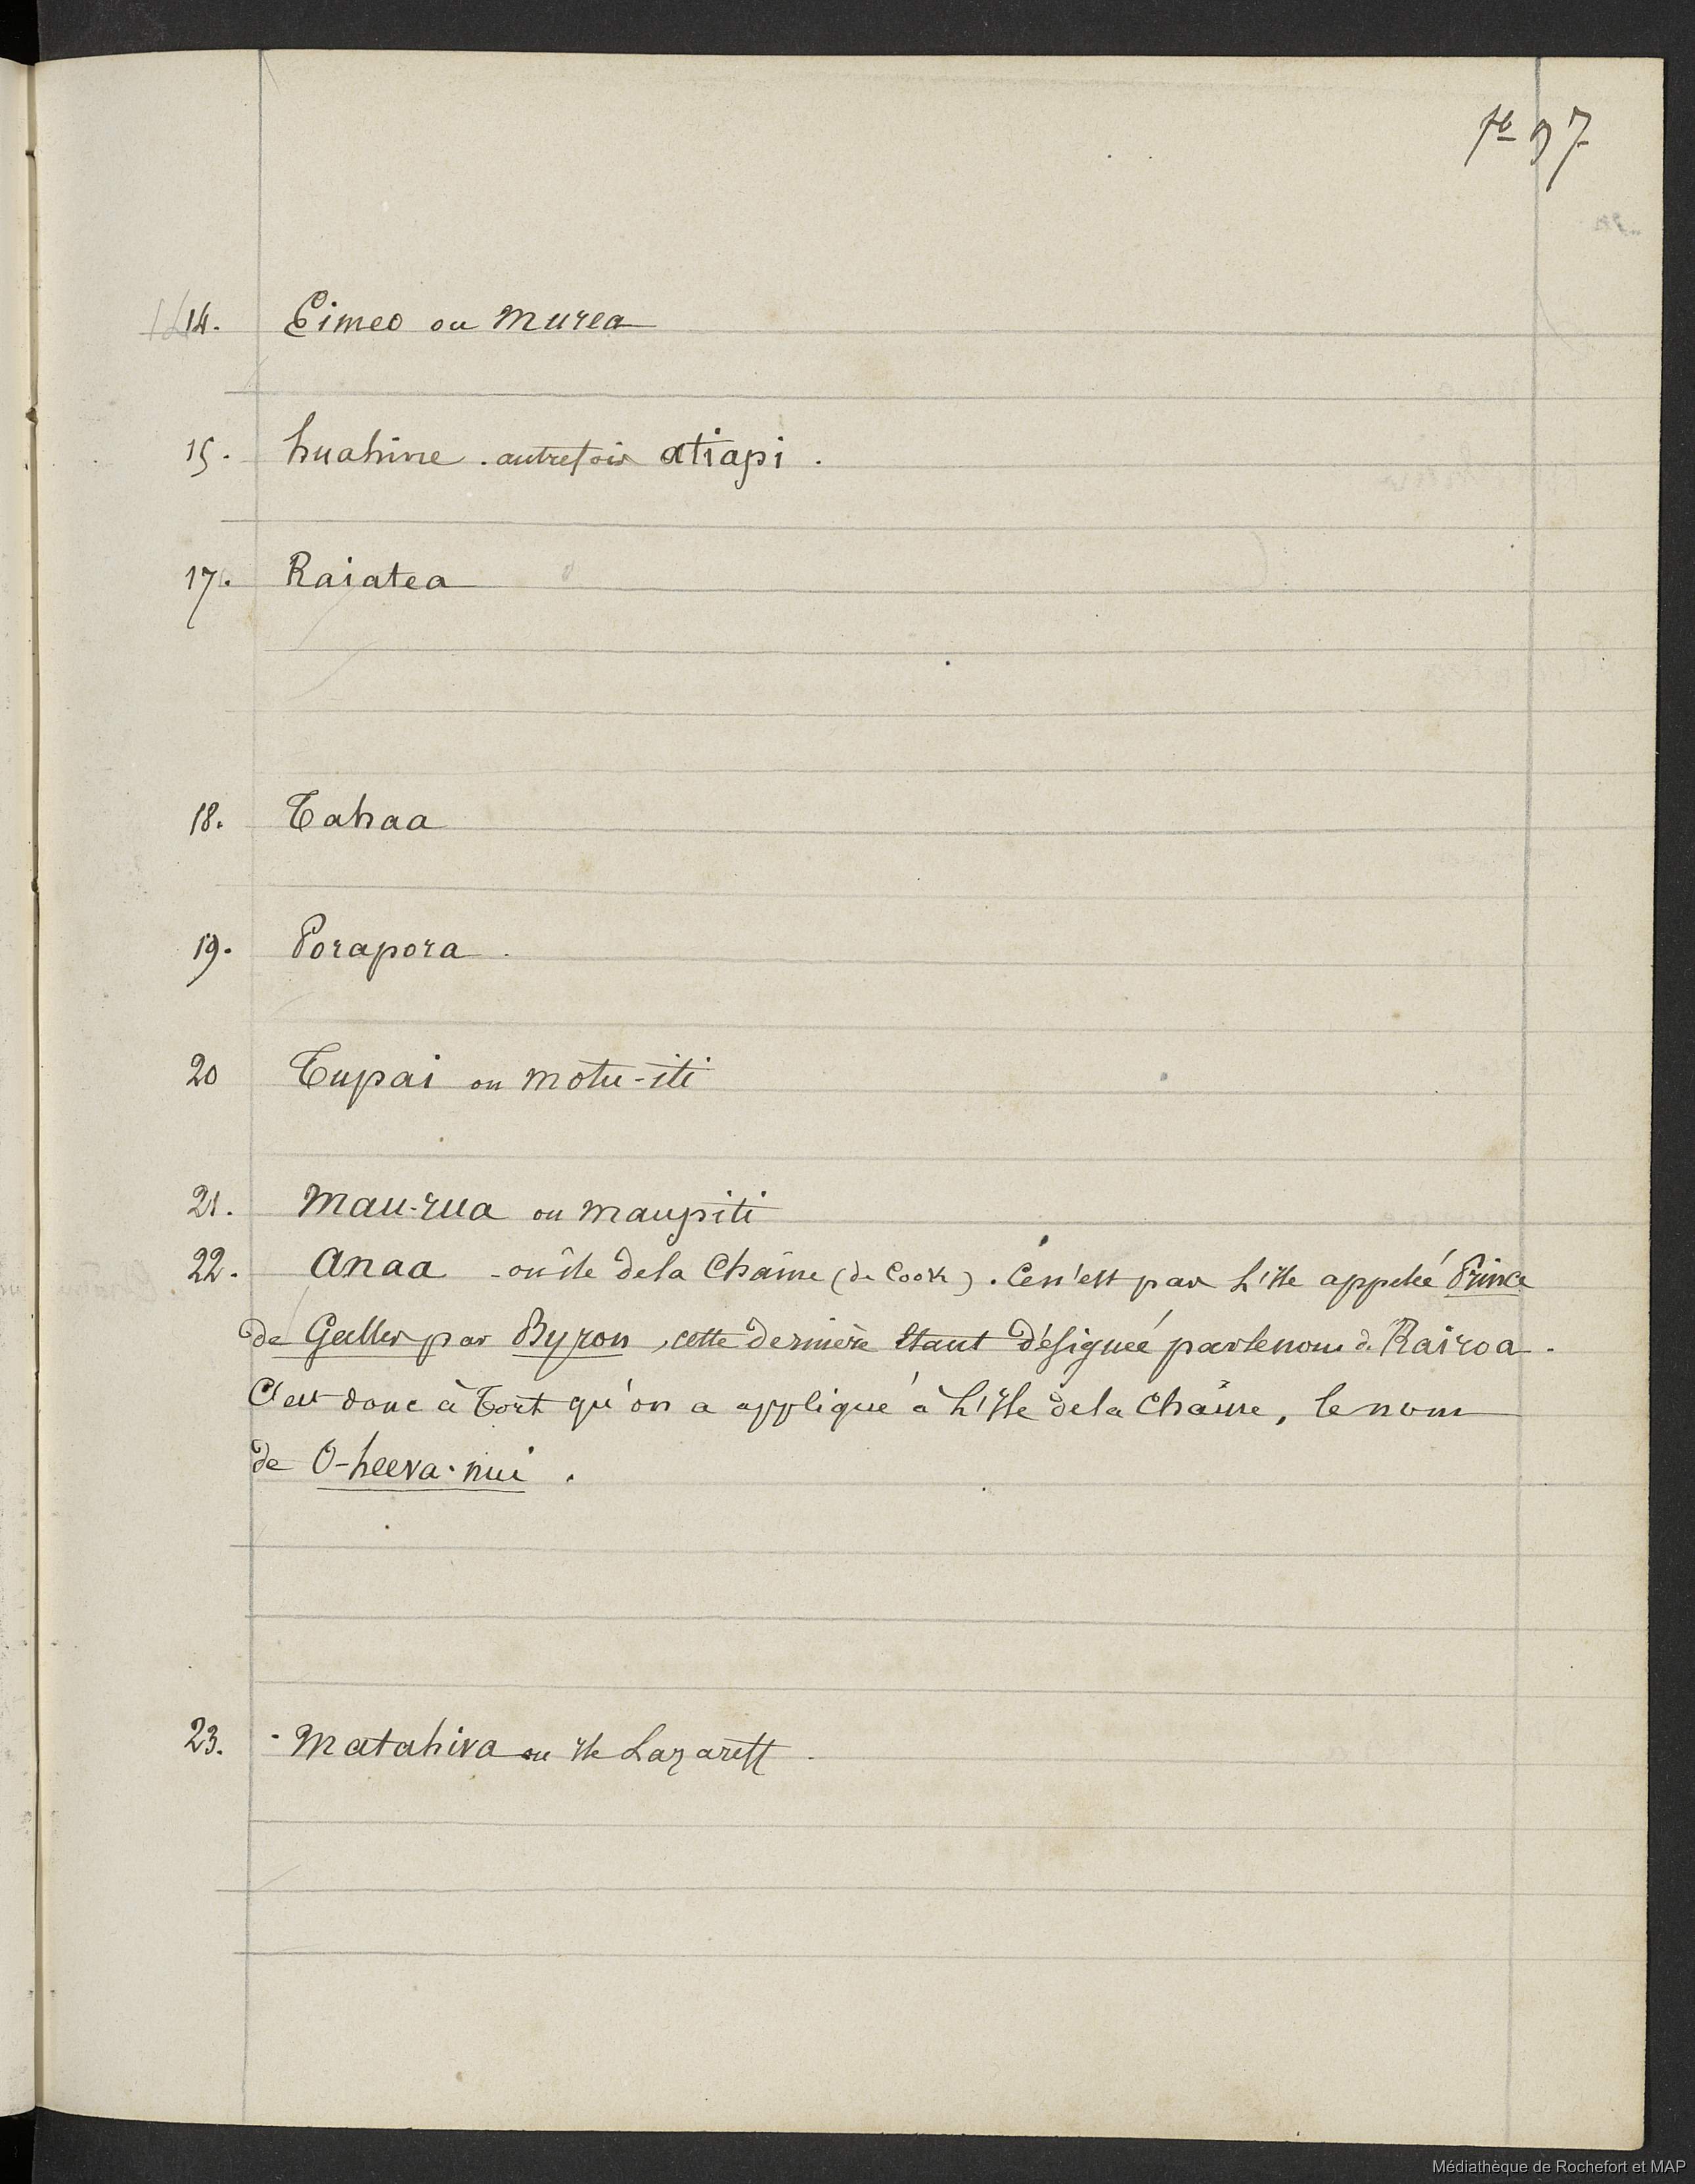 97
14. Eimeo ou Murea
15. huahine . autrefois atiapi .
17. Raiatea
18. Tahaa
19. Porapora .
20 Tupai ou Motu-iti
21. Mau-rua ou Maupiti
22. Anaa - ou île de la Chaîne (de Cook) . Ce n'est pas L'île appelée Prince
de Galles par Byron , cette dernière étant désignée par le nom de Rairoa .
C'est donc à tort qu'on a appliqué à L'île de la Chaîne , le nom
de O-heeva-nui .
23. - Matahiva ou île Lazareff .
Médiathèque de Rochefort et MAP